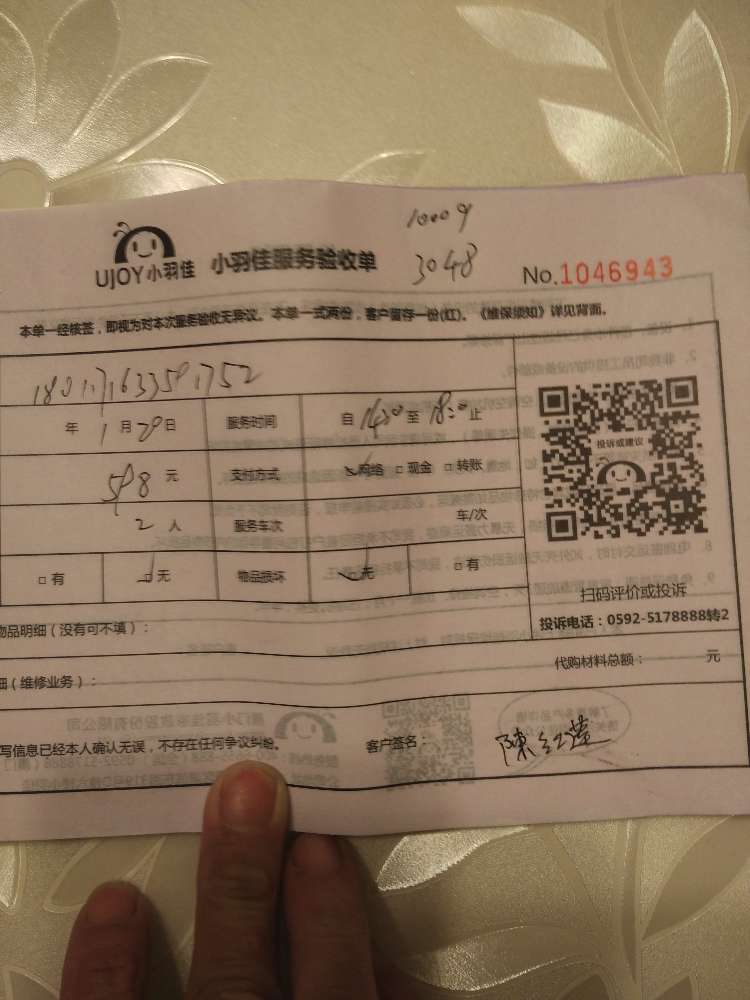 10009
UJOY小羽佳 小羽佳服务验收单 3048 No.1046943
本单一经核签，即视为对本次服务验收无异议。本单一式两份，客户留存一份(红)。《维保须知》详见背面。
年 1月20日 服务时间 自 14:00 至 18:00 止
投诉或建议
598 元 支付方式 网络 □ 现金 □ 转账
2 人 服务车次 车/次
□ 有 □ 无 物品损坏 □ 无 □ 有
扫码评价或投诉
投诉电话：0592-5178888转2
物品明细（没有可不填）：
代购材料总额： 元
细（维修业务）：
写信息已经本人确认无误，不存在任何争议纠纷。 客户签名： 陳红莲